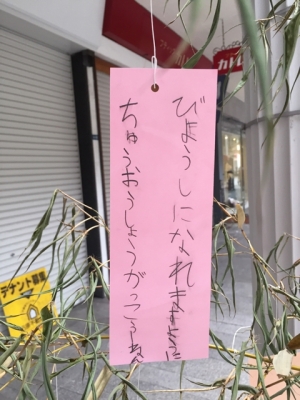 びようしになれますように
ちゅうおうしょうがっこう
テナント募集